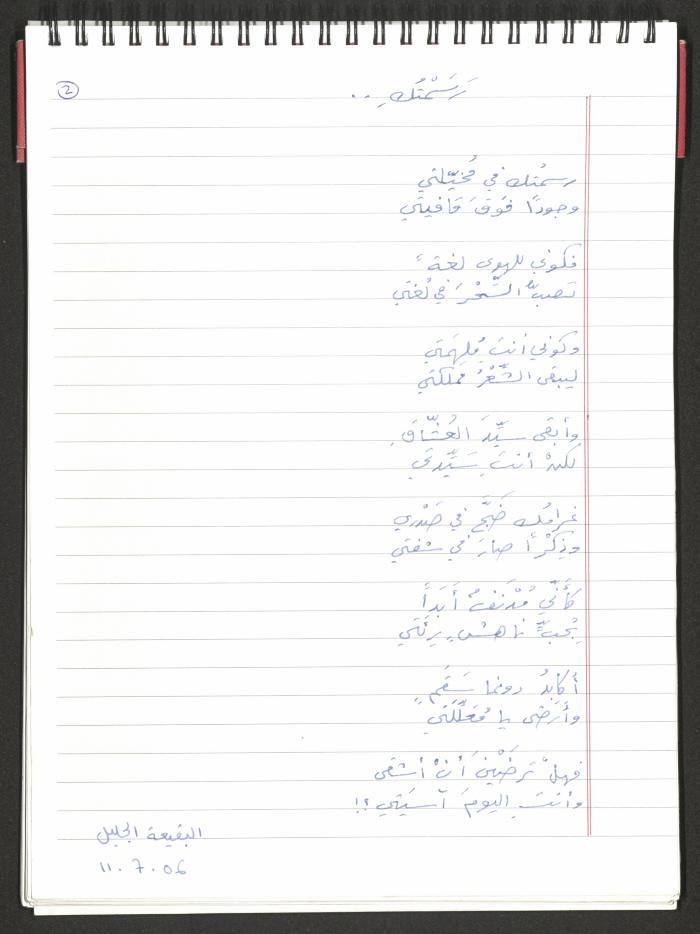 رَسَمْتُكِ ..
②
رسمتُك في مُخيّلتي
وجودًا فَوْقَ قَافيتي
فكوني للهوى لغةً
تَصبُّ السِّحْرَ في لُغتي
وكوني أنتِ مُلهِمَتي
ليبقى الشِّعْرُ مَملكتي
وأبقى سيِّدَ العُشّاقِ
لكنْ أنتِ سَيِّدتي
غرامُك ضَجَّ في صَدْري
وذِكْرًا صارَ في شفتي
كأَنّي مُدْنَفٌ أَبَدًا
بِحُبٍّ ناهشٍ رِئَتي
أُكابِدُ دونما سَقَمٍ
وأَرضى يا مُعَلِّلَتي
فهلْ تَرضَيْنَ أنْ أشقى
وأنتِ اليومَ آسيَتي ؟!
البقيعة الجليل
11.7.06